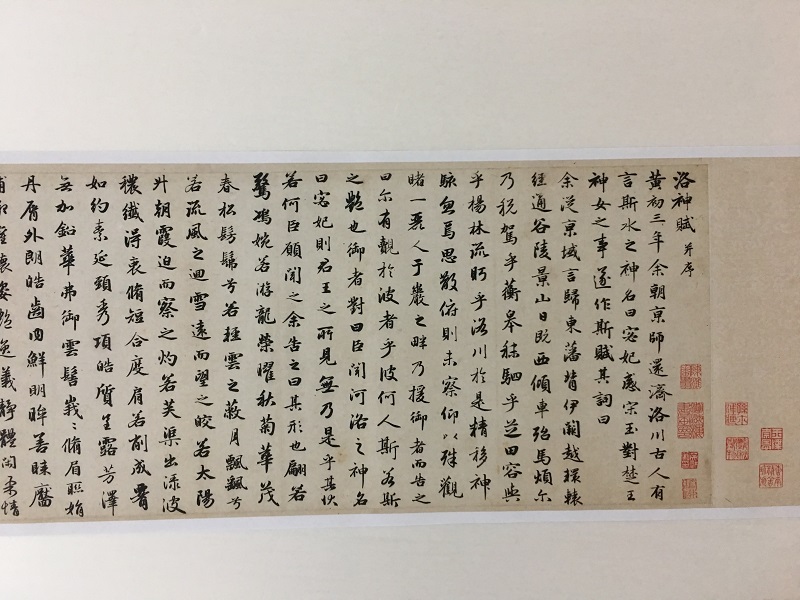 洛神賦 并序
黃初三年余朝京師還濟洛川古人有
言斯水之神名曰宓妃感宋玉對楚王
神女之事遂作斯賦其詞曰
余從京域言歸東藩背伊闕越轘轅
經通谷陵景山日既西傾車殆馬煩尒
乃稅駕乎蘅皋秣駟乎芝田容與
乎楊林流眄乎洛川於是精移神
駭忽焉思散俯則未察仰以殊觀
睹一麗人于巖之畔乃援御者而告之
曰尒有覿於彼者乎彼何人斯若斯
之艷也御者對曰臣聞河洛之神名
曰宓妃則君王之所見無乃是乎其狀
若何臣願聞之余告之曰其形也翩若
驚鴻婉若游龍榮曜秋菊華茂
春松髣髴兮若輕雲之蔽月飄颻兮
若流風之迴雪遠而望之皎若太陽
升朝霞迫而察之灼若芙渠出淥波
穠纖得衷脩短合度肩若削成
如約素延頸秀項皓質呈露芳澤
無加鉛華弗御雲髻峩〻脩眉聯娟
丹脣外朗皓齒內鮮明眸善睞靨
姿艷逸儀靜體閑柔情